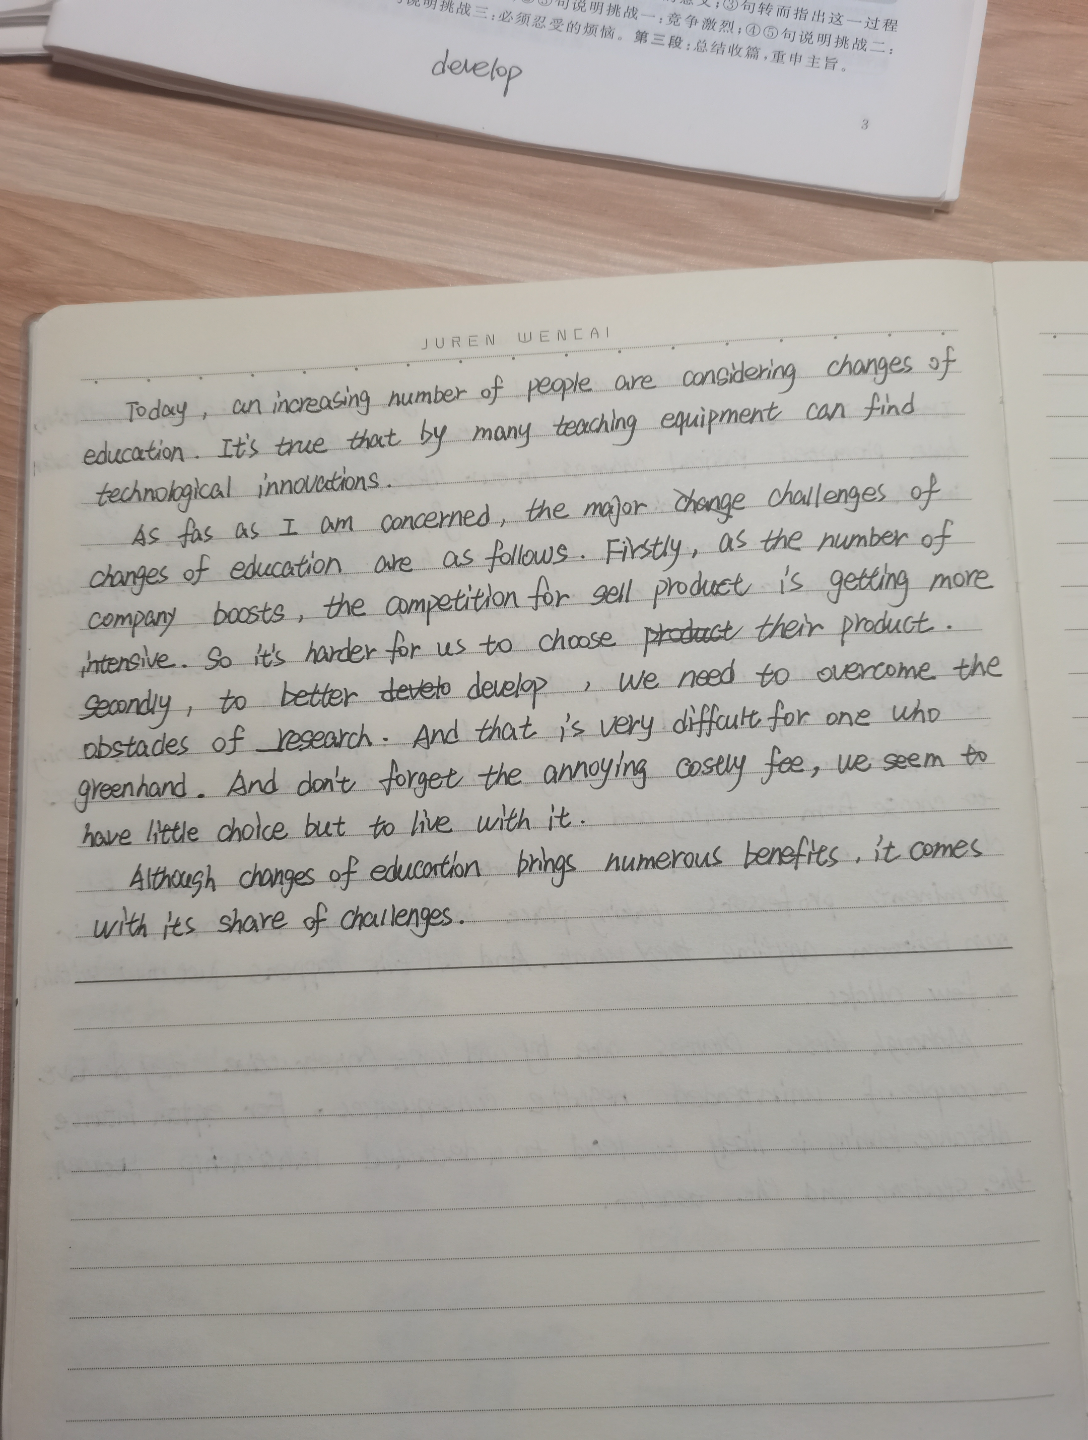 句说明挑战一:竞争激烈;④⑤句说明挑战二:
;③句转而指出这一过程
说明挑战三:必须忍受的烦恼。第三段:总结收篇,重申主旨。
develop
3
JUREN WENCAI
Today, an increasing number of people are considering changes of
education. It's true that by many teaching equipment can find
technological innovations.
As fas as I am concerned, the major change challenges of
changes of education are as follows. Firstly, as the number of
company boosts, the competition for sell product is getting more
intensive. So it's harder for us to choose product their product.
Secondly, to better develo develop, we need to overcome the
obstades of research. And that is very diffcult for one who
greenhand. And don't forget the annoying costly fee, we seem to
have little choice but to live with it.
Although changes of education brings numerous benefits, it comes
with its share of challenges.